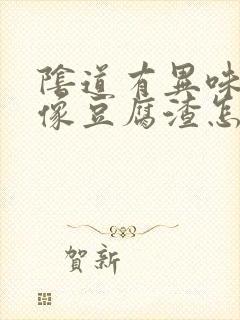 陰道有異味
像豆腐渣怎
賀新